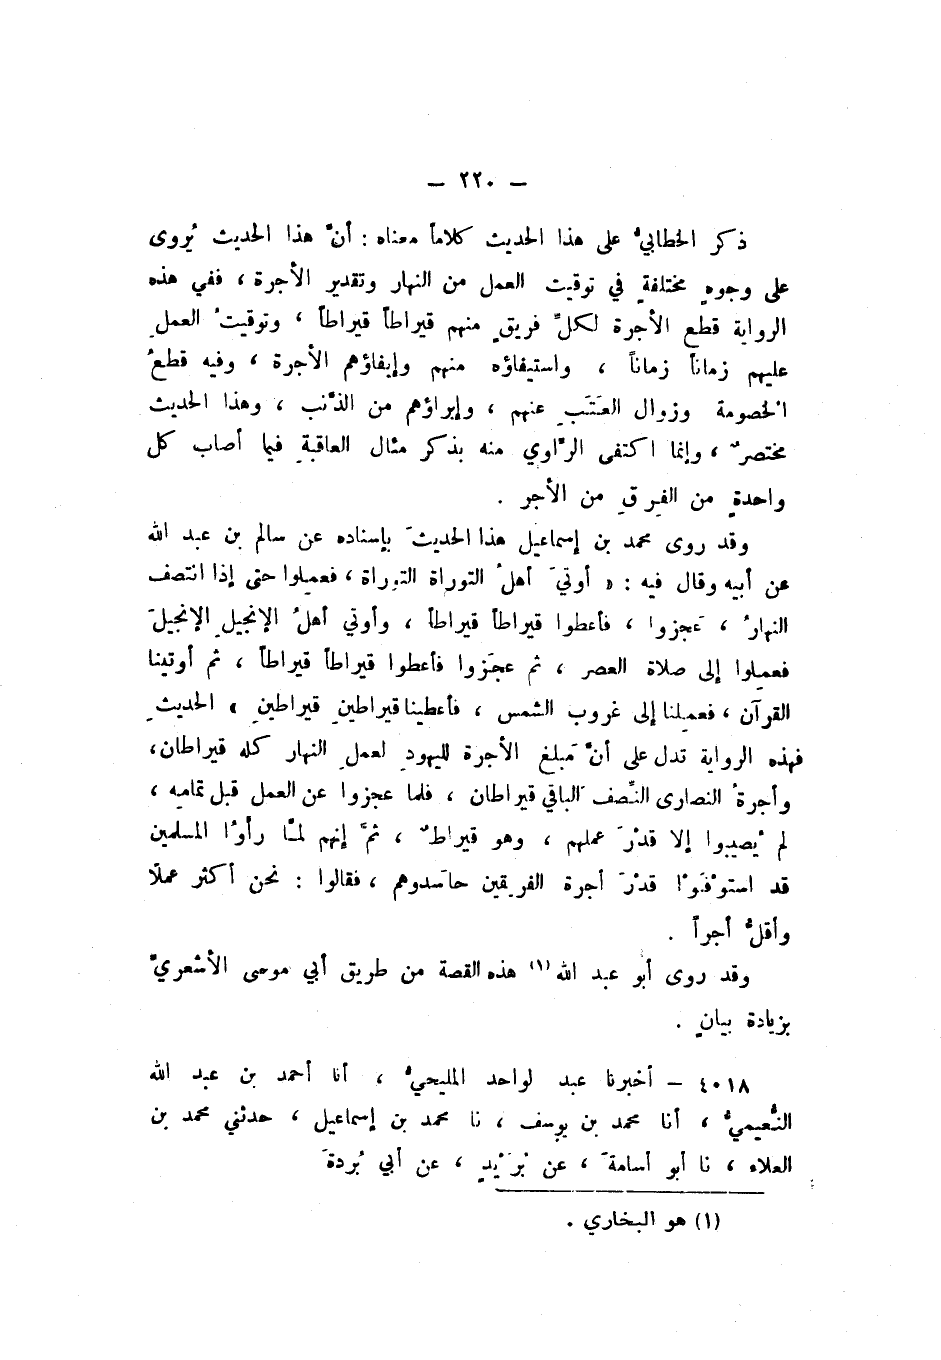 – ٢٢٠ –
ذكر الخطابيُّ على هذا الحديث كلاماً معناه : أنَّ هذا الحديث يُروى
على وجوهٍ مختلفةٍ في توقيت العمل من النهار وتقدير الأجرة ، ففي هذه
الرواية قطع الأجرة لكلِّ فريقٍ منهم قيراطاً قيراطاً ، وتوقيتُ العملِ
عليهم زماناً زماناً ، واستيفاؤه منهم وإيفاؤهم الأجرة ، وفيه قطعُ
الخصومة وزوال العَتَبِ عنهم ، وإبراؤهم من الذَّنب ، وهذا الحديث
مختصرٌ ، وإنما اكتفى الرَّاوي منه بذكر مثال العاقبةِ فيما أصاب كل
واحدةٍ من الفِرقِ من الأجر .
وقد روى محمد بن إسماعيل هذا الحديثَ بإسناده عن سالم بن عبد الله
عن أبيه وقال فيه : « أوتيَ أهلُ التوراة التوراة ، فعمِلوا حتى إذا انتصف
النهارُ ، عَجزوا ، فأعطوا قيراطاً قيراطاً ، وأوتي أهلُ الإنجيلِ الإنجيلَ
فعمِلوا إلى صلاة العصر ، ثم عجَزوا فأعطوا قيراطاً قيراطاً ، ثم أوتينا
القرآن ، فعمِلنا إلى غروب الشمس ، فأعطينا قيراطينِ قيراطينِ » الحديثِ
فهذه الرواية تدل على أنَّ مَبلغ الأجرة لليهودِ لعملِ النهار كله قيراطان،
وأجرةُ النصارى النِّصف الباقي قيراطان ، فلما عجزوا عن العمل قبل تمامِه ،
لم يُصيبوا إلا قدْرَ عملهم ، وهو قيراطٌ ، ثمَّ إنهم لمَّا رأوُا المسلمين
قد استوْفَوْا قدْرَ أجرة الفريقين حاسَدوهم ، فقالوا : نحن أكثر عملًا
وأقلُّ أجراً .
وقد روى أبو عبد الله (١) هذه القصة من طريق أبي موسى الأشعريِّ
بزيادة بيانٍ .
٤٠١٨ – أخبرنا عبد لواحد المليحيُّ ، أنا أحمد بن عبد الله
النُّعيميُّ ، أنا محمد بن يوسف ، نا محمد بن إسماعيل ، حدثني محمد بن
العلاء ، نا أبو أسامةَ ، عن بُرَيْدٍ ، عن أبي بُردةَ
(١) هو البخاري .